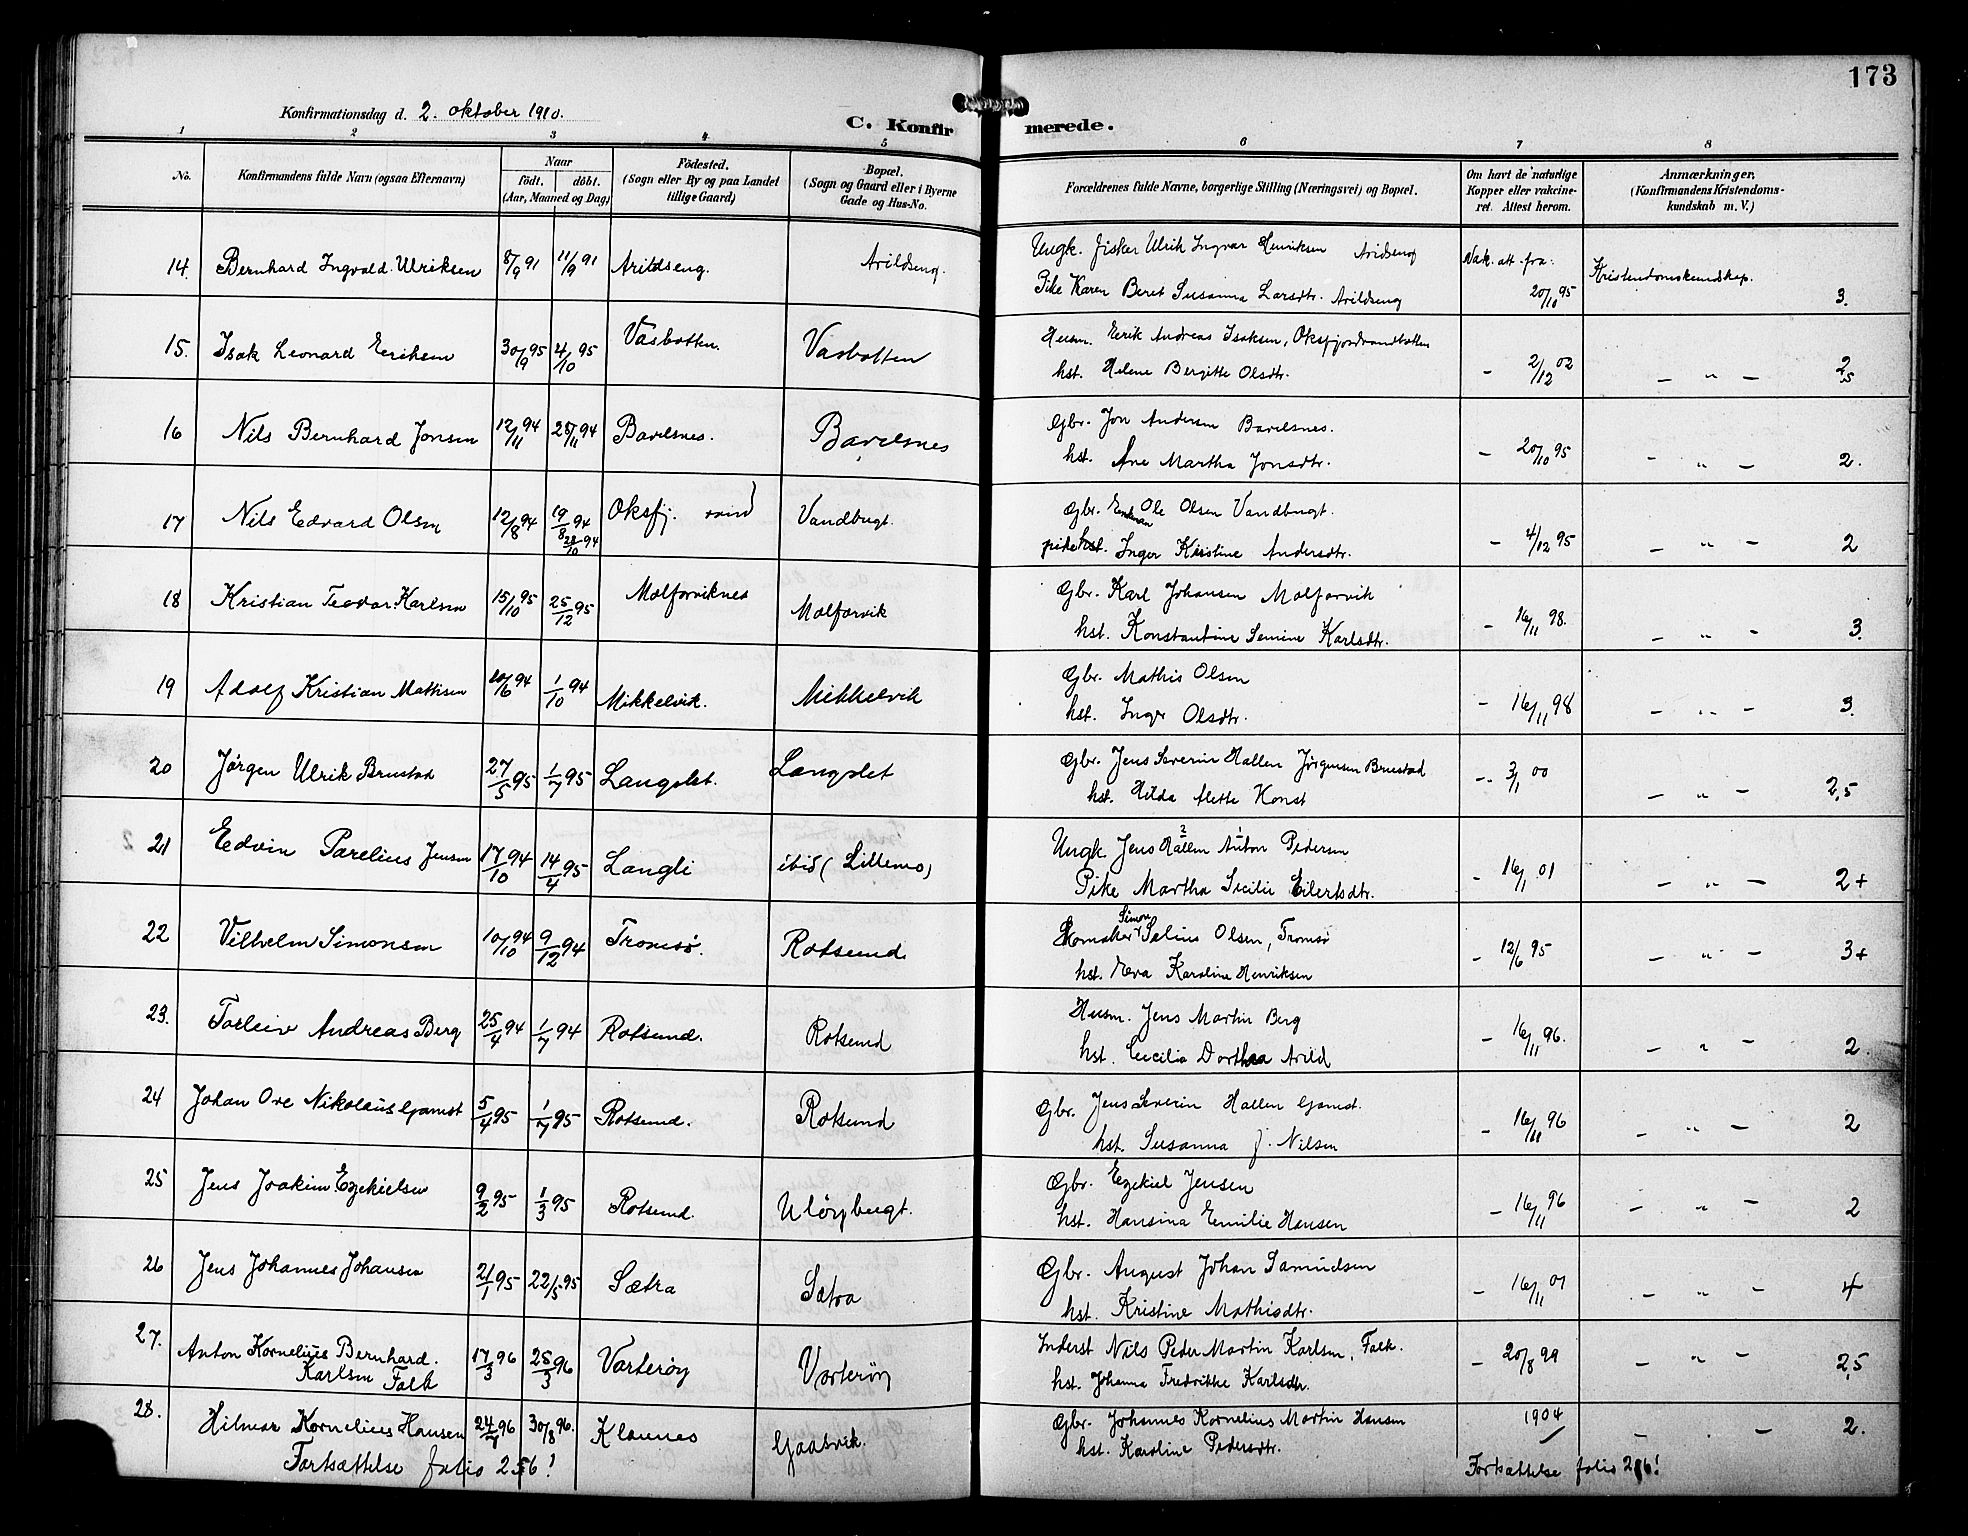 173
Konfirmationsdag d. 2. oktober 1910.
C. Konfirmerede.
1 2 3 4 5 6 7 8
No.
Konfirmandens fulde Navn (ogsaa Efternavn)
Naar
födt. döbt.
(Aar, Maaned og Dag)
Födested.
(Sogn eller By og paa Landet
tillige Gaard)
Bopæl.
(Sogn og Gaard eller i Byerne
Gade og Hus-No.
Forældrenes fulde Navne, borgerlige Stilling (Næringsvei) og Bopæl.
Om havt de naturlige
Kopper eller vakcine-
ret. Attest herom.
Anmærkninger,
(Konfirmandens Kristendoms-
kundskab m. V.)
14. Bernhard Ingvald Ulriksen 8/9 91 11/9 91 Arildseng. Arildseng. Ungk. fisker Ulrik Ingvar Henriksen Arildseng Vak. att. fra: Kristendomskundskap.
Pike Karen Beret Susanna Larsdtr. Arildseng 20/10 95 3.
15. Isak Leonard Eriksen 30/9 95 4/10 95 Vasbotten. Vasbotten Husm. Erik Andreas Isaksen, Oksfjordvandbotten
hst. Helene Bergitte Olsdtr. - 2/12 02 - " - 2,5
16 Nils Bernhard Jonsen 12/11 94 25/11 94 Bavelsnes. Bavelsnes Gbr. Jon Andersen Bavelsnes.
hst. Ane Martha Jonsdtr. - 20/10 95 - " - 2.
17 Nils Edvard Olsen 12/8 94 19/8 94 28/10 94 Oksfj. vand Vandbugt. Gbr. Enkman Ole Olsen Vandbugt.
pike hst. Inger Kristine Andersdtr. - 4/12 95 - " - 2
18 Kristian Teodor Karlsen 15/10 95 25/12 95 Molforviknes Molforvik Gbr. Karl Johansen Molforvik
hst. Konstantine Semine Karlsdtr. - 16/11 98. - " - 3.
19 Adolf Kristian Mathisen 20/6 94 1/10 94 Mikkelvik. Mikkelvik Gbr. Mathis Olsen
hst. Inger Olsdtr. - 16/11 98 - " - 3.
20 Jørgen Ulrik Brustad 27/5 95 1/7 95 Langslet. Langslet Gbr. Jens Severin Hallen Jørgensen Brustad
hst. Hilda Alette Konst - 3/1 00 - " - 2,5
21 Edvin Parelius Jensen 17/10 94 14/4 95 Langli ibid (Lillemo) Ungk. Jens Hallen Anton Pedersen
Pike Martha Sicilie Eilertsdtr. - 16/1 01 - " - 2+
22 Vilhelm Simonsen 10/10 94 9/12 94 Tromsø. Rotsund. Skomaker Simon Salius Olsen, Tromsø
hst. Eva Karoline Henriksen - 12/6 95 - " - 3+
23. Torleiv Andreas Berg 25/4 94 1/7 94 Rotsund. Rotsund Husm. Jens Martin Berg
hst. Cecilia Dorthea Arild - 16/11 96. - " - 2.
24 Johan Ove Nikolaus Gamst 5/4 95 1/7 95 Rotsund. Rotsund Gbr. Jens Severin Hallen Gamst.
hst. Susanna J. Nilsen - 16/11 96 - " - 2
25 Jens Joakim Ezekielsen 9/2 95 1/3 95 Rotsund. Uløybugt. Gbr. Ezekiel Jensen
hst. Hansina Emilie Hansen - 16/11 96 - " - 2
26 Jens Johannes Johansen 21/1 95 22/5 95 Sætra Sætra Gbr. August Johan Samuelsen
hst. Kristine Mathisdtr. - 16/11 01 - " - 4
27. Anton Kornelius Bernhard.
Karlsen Falk 17/3 96 25/3 96 Vorterøy Vorterøy Inderst Nils Peder Martin Karlsen, Falk.
hst. Johanna Fredrikke Karlsdtr. - 20/8 99 - " - 2,5
28. Hilmar Kornelius Hansen 24/7 96 30/8 96. Klaunes Gaasvik. Gbr. Johannes Kornelius Martin Hansen
hst. Karoline Pedersdtr. 1904 - . - 2.
Fortsættelse folio 256!
Fortsættelse folio 216!